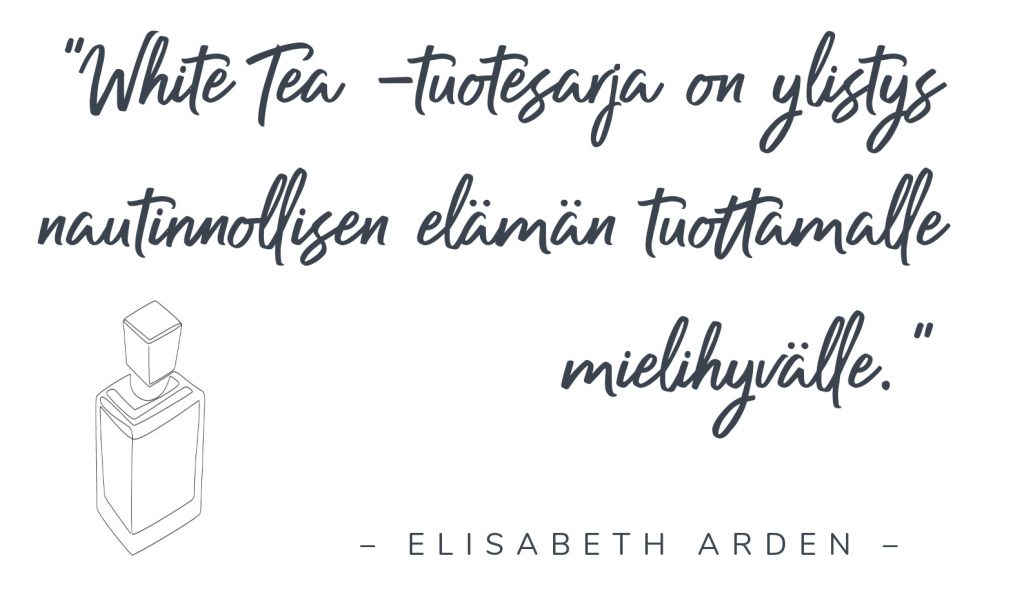 "White Tea -tuotesarja on ylistys
nautinnollisen elämän tuottamalle
mielihyvälle."
– ELISABETH ARDEN –